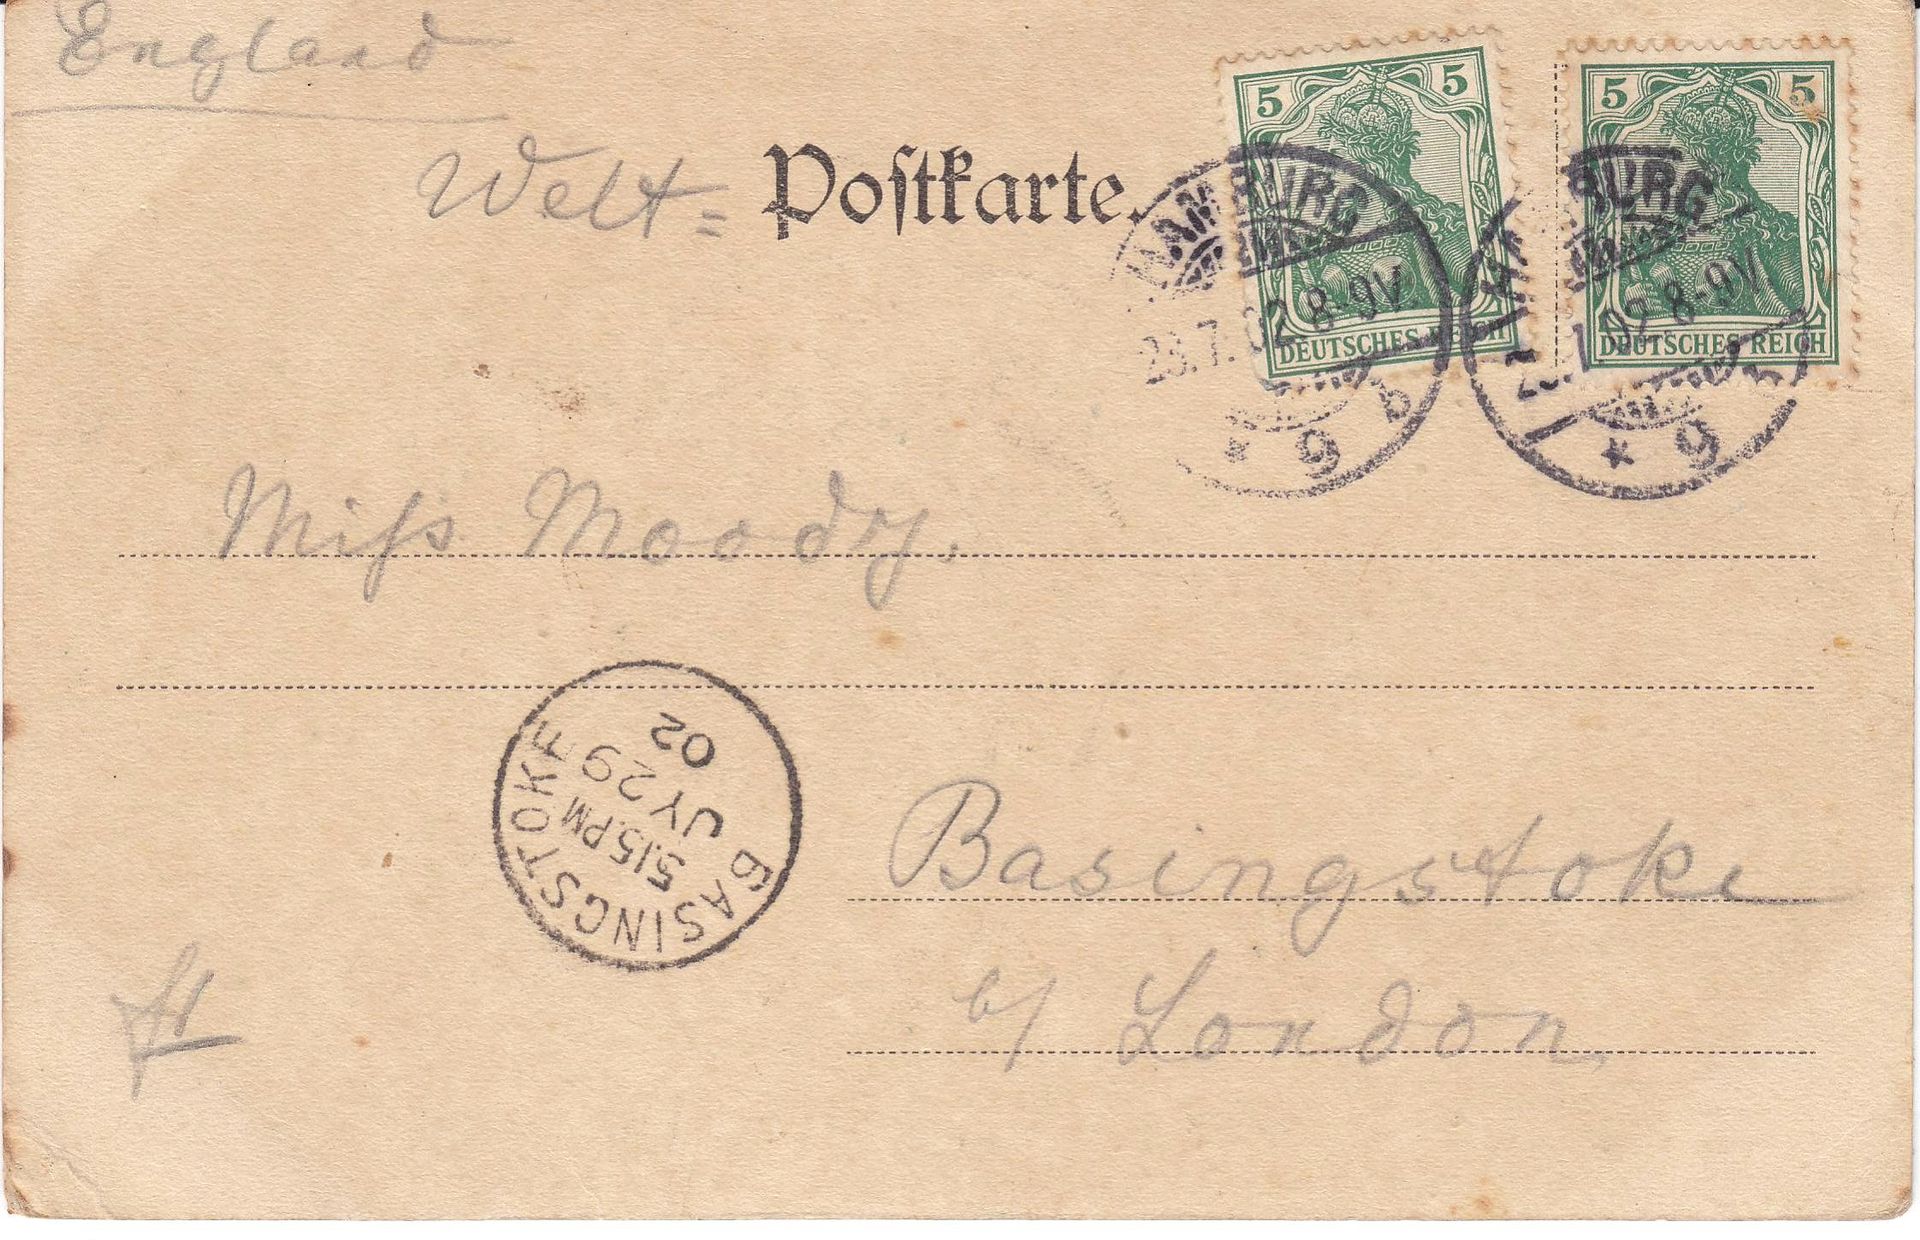 England
Welt= Postkarte.
5 5
DEUTSCHES REICH
5 5
DEUTSCHES REICH
HAMBURG
23.7.02 8-9V
* 9 b
HAMBURG
7.02 8-9V
* 9 b
Miss Moody.
BASINGSTOKE
5.15.PM
JY 29
02
Basingstoke
b/ London.